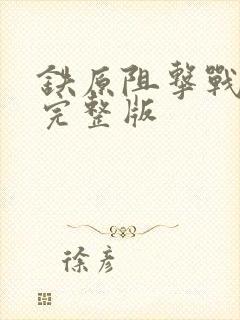 铁原阻擊戰
完整版
徐彦